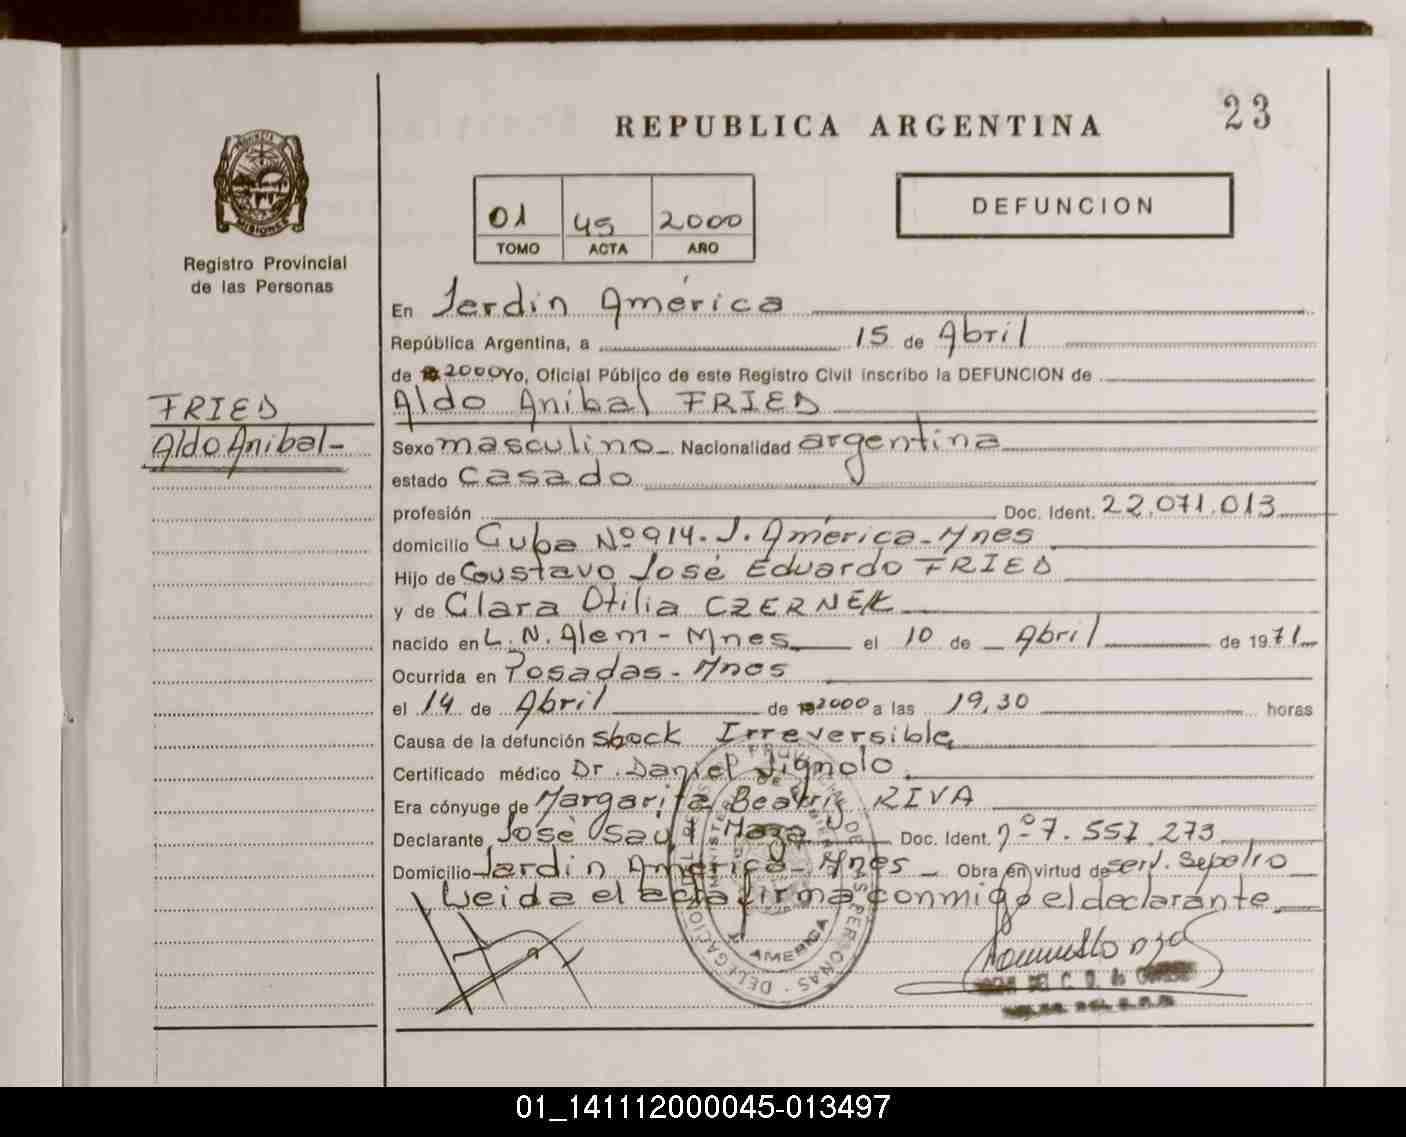 23
REPUBLICA ARGENTINA
DEFUNCION
01 45 2000
TOMO ACTA AÑO
MISIONES
Registro Provincial
de las Personas
FRIED
Aldo Anibal-
En Jardin América
República Argentina, a 15 de Abril
de 2000 Yo, Oficial Público de este Registro Civil inscribo la DEFUNCION de
Aldo Anibal FRIED
Sexo masculino Nacionalidad argentina
estado casado
profesión Doc. Ident. 22.071.013
domicilio Cuba Nº 914. J. América-Mnes
Hijo de Gustavo José Eduardo FRIED
y de Clara Otilia CZERNEK
nacido en L. N. Alem - Mnes el 10 de Abril de 1971
Ocurrida en Posadas - Mnes
el 14 de Abril de 2000 a las 19,30 horas
Causa de la defunción shock Irreversible
Certificado médico Dr. Daniel Vignolo
Era cónyuge de Margarita Beatriz RIVA
Declarante José Saúl Maza Doc. Ident. nº 7.557.273
Domicilio Jardin América - Mnes Obra en virtud de serv. Sepelio
Leida el acta firma conmigo el declarante
DE LAS PERSONAS - DELEGACION
J. AMERICA
01_141112000045-013497